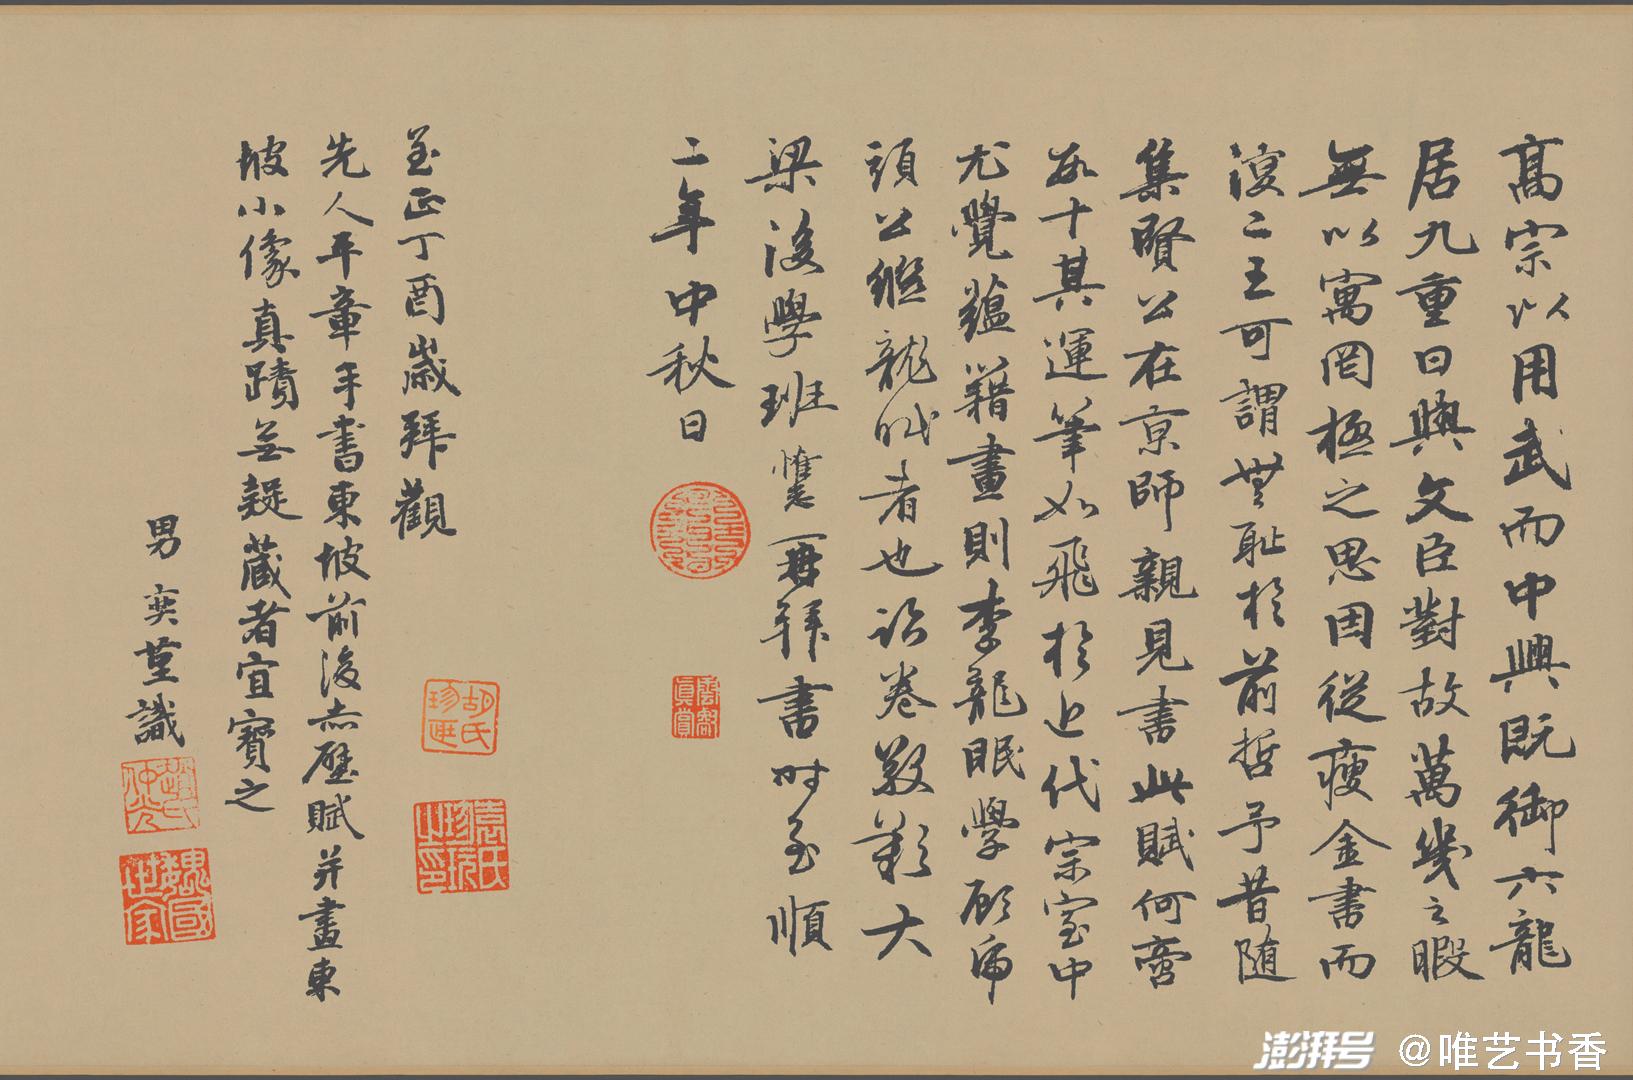 高宗以用武而中興既御六龍
居九重日與文臣對故萬幾之暇
無以寓罔極之思因從瘦金書而
復二王可謂無耻於前哲予昔隨
集賢公在京師親見書此賦何啻
數十其運筆如飛於近代宗室中
尤覺蘊藉畫則李龍眠學顧虎
頭公繼龍眠者也詒卷敬歎大
梁後學班惟志再拜書时至順
二年中秋日
至正丁酉歲拜觀
先人平章手書東坡前後赤壁賦并畫東
坡小像真蹟無疑藏者宜寶之
男奕堇識
胡氏珍匪
袁氏珍玩之印
真賞
趙氏仲光
魏國世家
澎湃号 @唯艺书香